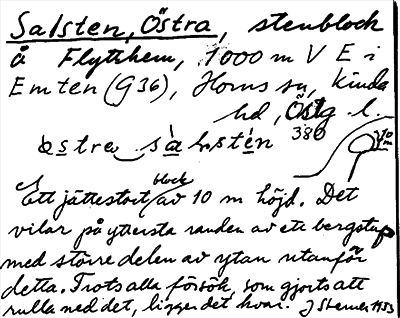 Salsten, Östra, stenblock
å Flytthem, 1000 m V E i
Emten (G36), Horns sn, Kinda
hd, Östg l.
380
10 m
östre salsten
Ett jättestort block av 10 m höjd. Det
vilar på yttersta randen av ett bergstup
med större delen av ytan utanför
detta. Trots alla försök, som gjorts att
rulla ned det, ligger det kvar. J Sterner 1953